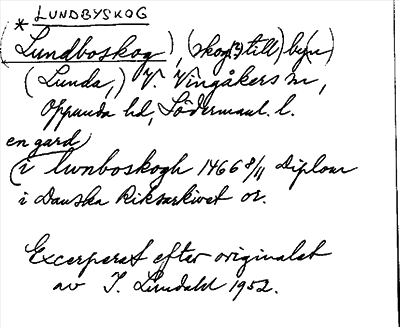 * LUNDBYSKOG
(Lundboskog), (skog till by(n)
(Lunda,) V. Vingåkers sn,
Oppunda hd, Södermanl. l.
en gard
(i lwnboskogh 1466 8/11 Diplom
i Danska Riksarkivet or.
Excerperat efter originalet
av I. Lundahl 1952.